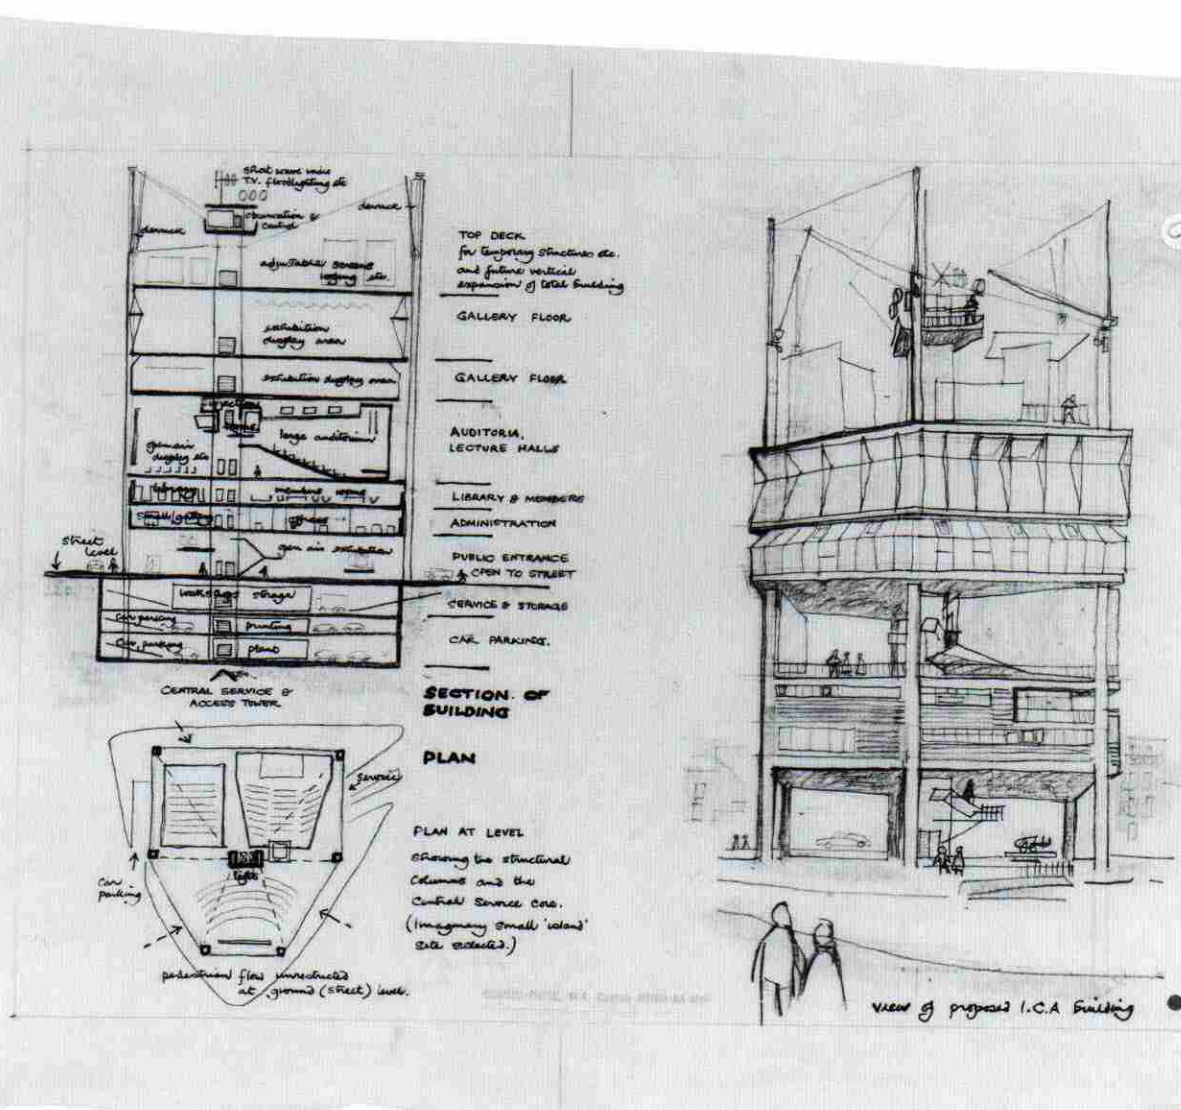 short wave
T.V. floodlighting etc
observation &
control
derrick
derrick
adjustable screens
etc.
exhibition
display area
exhibition display area
large auditorium
open air
display etc
library
members rooms
small gallery
offices
street
level
open air exhibition
workshops storage
car parking
printing
car parking
plant
CENTRAL SERVICE &
ACCESS TOWER.
TOP DECK
for temporary structures etc.
and future vertical
expansion of total building
GALLERY FLOOR
GALLERY FLOOR
AUDITORIA,
LECTURE HALLS
LIBRARY & MEMBERS
ADMINISTRATION
PUBLIC ENTRANCE
OPEN TO STREET
SERVICE & STORAGE
CAR PARKING.
SECTION OF
BUILDING
PLAN
service
car
parking
lifts
pedestrian flow unrestricted
at ground (street) level.
PLAN AT LEVEL
showing the structural
columns and the
central service core.
(Imaginary small 'island'
site selected.)
view of proposed I.C.A building